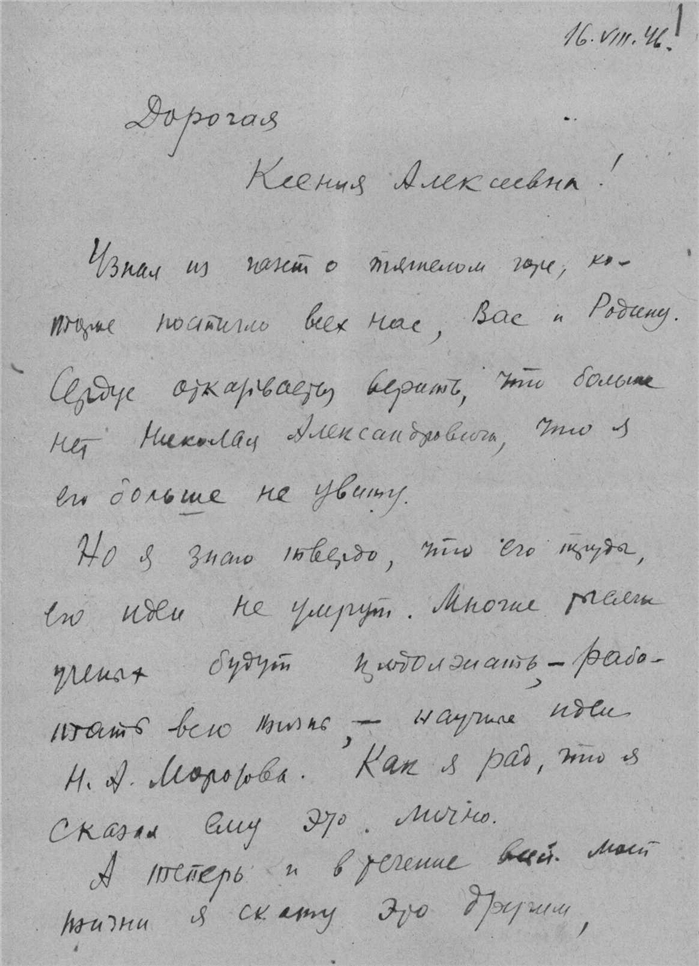 16.VIII.46.
Дорогая
Ксения Алексеевна!
Узнал из газет о тяжелом горе, ко-
торое постигло всех нас, Вас и Родину.
Сердце отказывается верить, что больше
нет Николая Александровича, что я
его больше не увижу.
Но я знаю твердо, что его труды,
его идеи не умрут. Многие тысячи
ученых будут продолжать, – рабо-
тать всю жизнь, – научные идеи
Н. А. Морозова. Как я рад, что я
сказал ему это лично.
А теперь и в течение всей моей
жизни я скажу это другим,